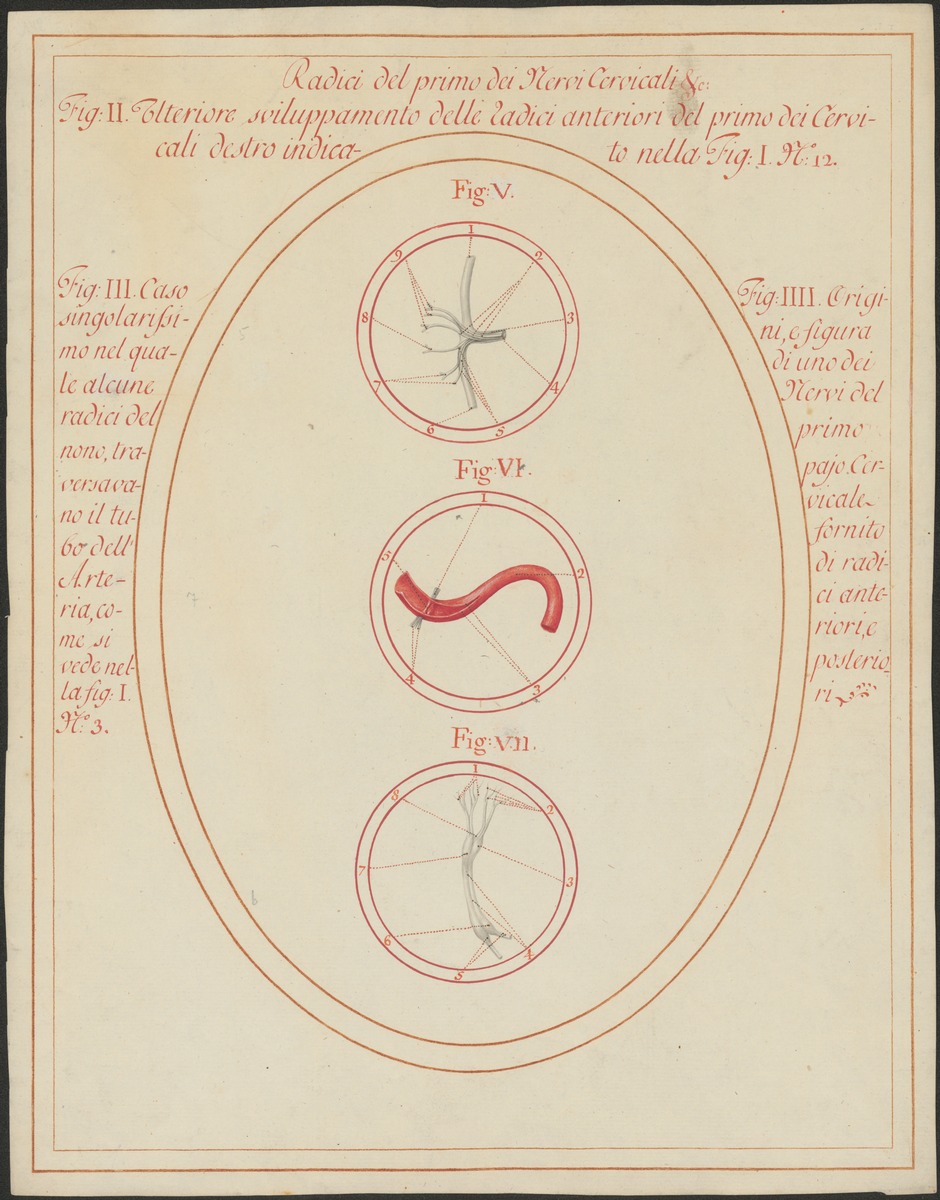 Radici del primo dei Nervi Cervicali &c:
Fig: II. Ulteriore sviluppamento delle radici anteriori del primo dei Cervi-
cali destro indica-
to nella Fig: I. N.º 12.
Fig: III. Caso
singolarissi-
mo nel qua-
le alcune
radici del
nono, tra-
versava-
no il tu-
bo dell'
Arte-
ria, co-
me si
vede nel-
la fig: I.
N.º 3.
Fig: IIII. Origi-
ni, e figura
di uno dei
Nervi del
primo
pajo Cer-
vicale
fornito
di radi-
ci ante-
riori, e
posterio-
ri
Fig: V.
1
2
3
4
5
6
7
8
9
Fig: VI.
1
2
3
4
5
Fig: VII.
1
2
3
4
5
6
7
8
5
7
6